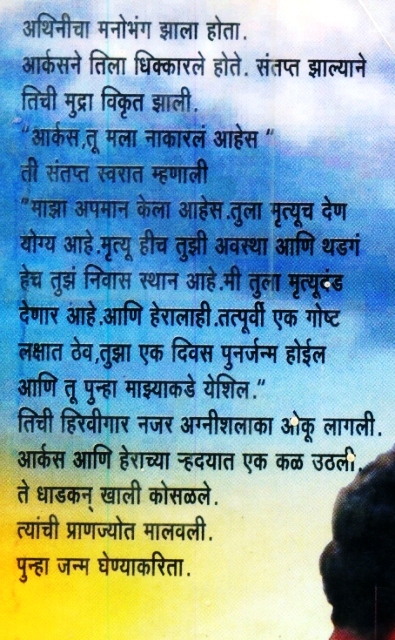 अथिनीचा मनोभंग झाला होता.
आर्कसने तिला धिक्कारले होते. संतप्त झाल्याने
तिची मुद्रा विकृत झाली.
“आर्कस,तू मला नाकारलं आहेस “
ती संतप्त स्वरात म्हणाली
”माझा अपमान केला आहेस.तुला मृत्यूच देण
योग्य आहे.मृत्यू हीच तुझी अवस्था आणि थडगं
हेच तुझं निवास स्थान आहे.मी तुला मृत्यूदंड
देणार आहे.आणि हेरालाही.तत्पूर्वी एक गोष्ट
लक्षात ठेव,तुझा एक दिवस पुनर्जन्म होईल
आणि तू पुन्हा माझ्याकडे येशिल.“
तिची हिरवीगार नजर अग्नीशलाका ओकू लागली.
आर्कस आणि हेराच्या ऱ्हदयात एक कळ उठली.
ते धाडकन् खाली कोसळले.
त्यांची प्राणज्योत मालवली.
पुन्हा जन्म घेण्याकरिता.